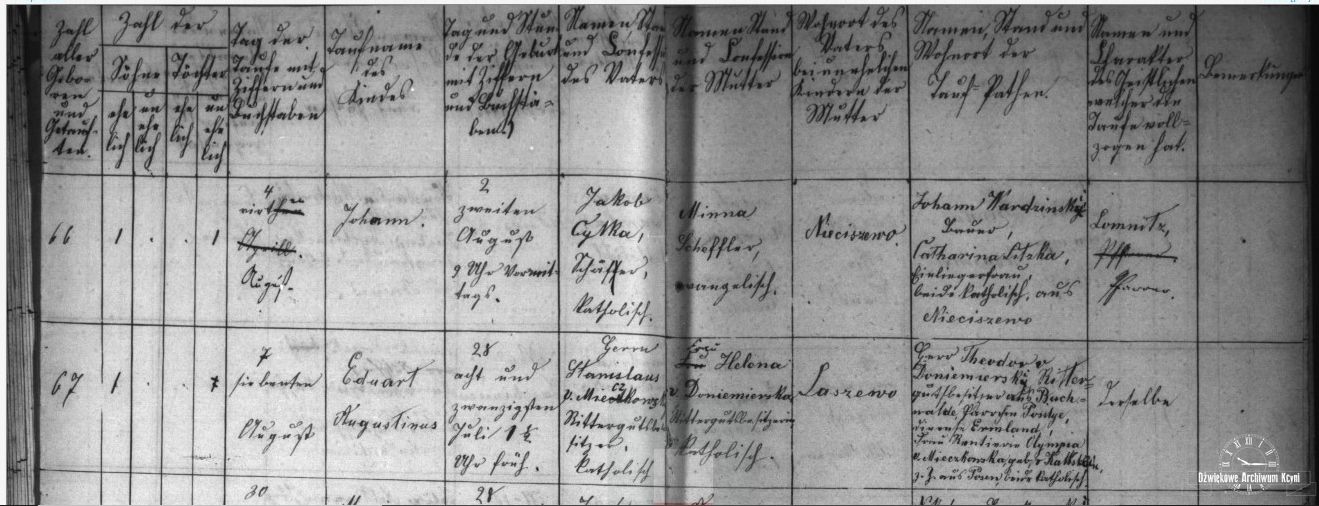 Zahl
aller
Gebor-
nen
und
Getauf-
ten.
Zahl der
Söhne
Töchter
ehe
lich
un
ehe
lich
ehe
lich
un
ehe
lich
Tag der
Taufe mit
Ziffern und
Buchstaben
Taufname
des
Kindes
Tag und Stun
de der Geburt
mit Ziffern
und Buchsta-
ben.
Namen Stand
und Confession
des Vaters
Namen Stand
und Confession
der Mutter
Wohnort des
Vaters
bei unehelichen
Kindern der
Mutter
Namen, Stand und
Wohnort der
Tauf-Pathen.
Namen und
Charakter
des Geistlichen
welcher die
Taufe voll-
zogen hat.
Bemerkungen
66
1 . . 1
4
vierten
April.
August.
Johann.
2
zweiten
August
9 Uhr Vormit-
tags.
Jakob
Cytka,
Schäffer,
katholisch.
Minna
Scheffler,
evangelisch.
Nieciszewo.
Johann Wardzinski
Bauer,
Catharina Litzka,
Einliegerfrau,
beide katholisch, aus
Nieciszewo
Lomnitz,
Pfarrer.
67
1 . .
7
siebenten
August
Eduart
Augustinus
28
acht und
zwanzigsten
Juli 1 ½
Uhr früh.
Herrn
Stanislaus
v. Mieczkowski
Rittergutsbe-
sitzer,
katholisch
Frau Helena
v. Doniemierska
Rittergutsbesitzerin
katholisch.
Laszewo
Herr Theodor v.
Doniemierski Ritter-
gutsbesitzer aus Buch-
walde,
Ermland,
Frau Rentierin Olympia
v. Mieczkowska, geb. v. Kalkstein,
z. Z. aus Posen, beide katholisch.
derselbe
30
28
Dźwiękowe Archiwum Kcyni